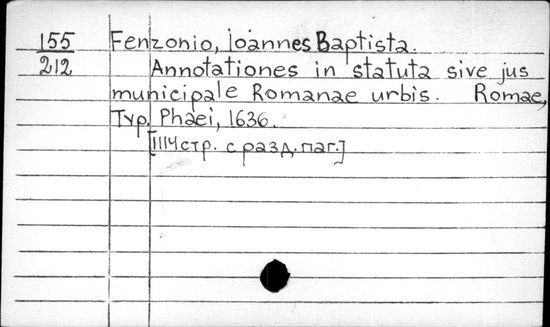 155 Fenzonio, Joannes Baptista.
212 Annotationes in statuta sive jus
municipale Romanae urbis. Romae,
Typ. Phaei, 1636.
[1114 стр. с разд. паг.]